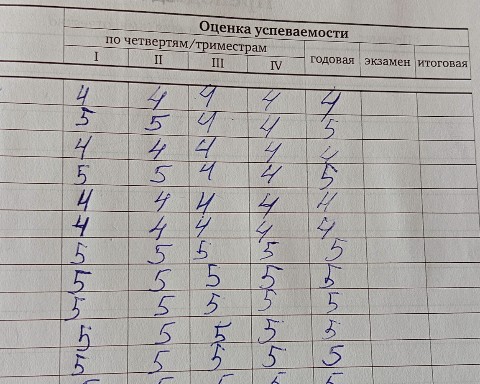 Оценка успеваемости
по четвертям/триместрам
I II III IV годовая экзамен итоговая
4 4 4 4 4
5 5 4 4 5
4 4 4 4 4
5 5 4 4 5
4 4 4 4 4
4 4 4 4 4
5 5 5 5 5
5 5 5 5 5
5 5 5 5 5
5 5 5 5 5
5 5 5 5 5